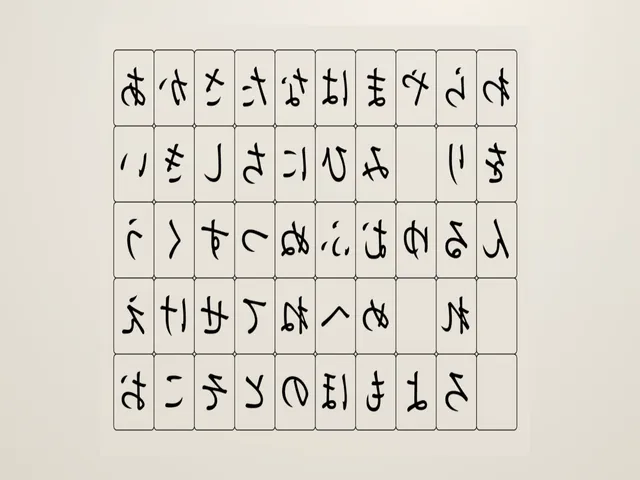 あ か さ た な は ま や ら わ
い き し ち に ひ み り を
う く す つ ぬ ふ む ゆ る ん
え け せ て ね へ め れ
お こ そ と の ほ も よ ろ